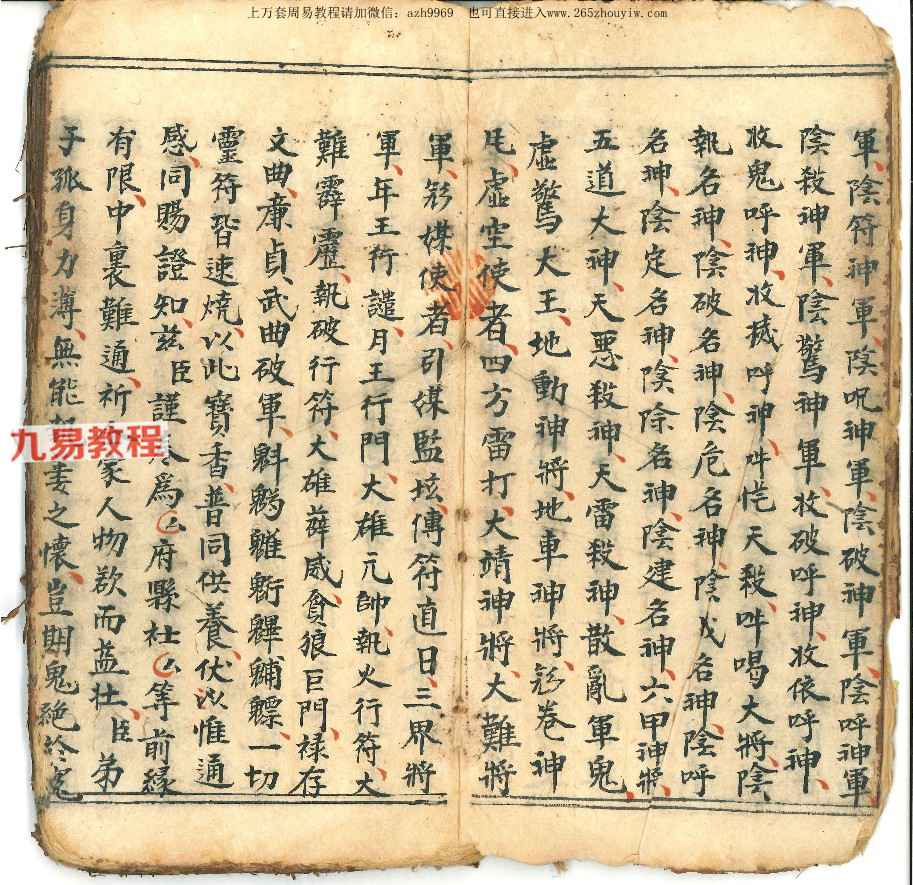 上万套周易教程请加微信：azh9969 也可直接进入www.265zhouyiw.com
軍、陰符神軍、陰呪神軍、陰破神軍、陰呼神軍、
陰殺神軍、陰驚神軍、收破呼神、收依呼神、
收鬼呼神、收
呼神、吽
天殺、吽喝大將、陰
執名神、陰破名神、陰危名神、陰
名神、陰呼
名神、陰定名神、陰除名神、陰建名神、六甲神將、
五道大神、天悪殺神、天雷殺神、散亂軍鬼、
虛驚大王、地動神將、地車神將、
卷神
虛空使者、四方雷打、大靖神將、大難神將
軍、
媒使者、引媒監坛、傳符直日、三界將
軍、年王行譴、月王行門、大雄元帥、執火行符、大
難霹靂、執破行符、大雄
威、貪狼巨門、祿存
文曲、廉貞、武曲破軍、魁
魒、一切
靈符皆速燒、以此寶香、普同供養、伏
惟通
感、同賜證知、兹臣謹
為
府縣社
等前縁
有限、中裏難通、祈
家人物欲而益壮、臣弟
子孤身力薄、無能
妻之懷、豈期鬼絶
九易教程